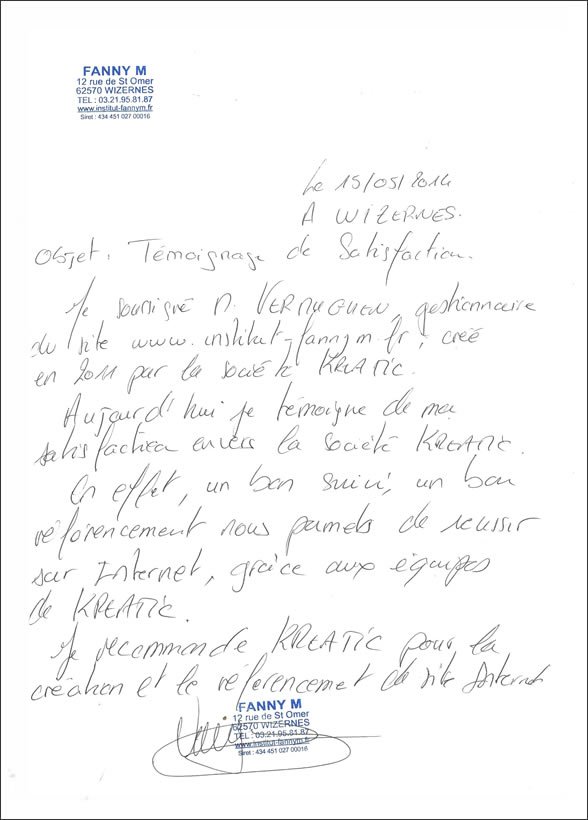 FANNY M
12 rue de St Omer
62570 WIZERNES
TEL : 03.21.95.81.87
www.institut-fannym.fr
Siret : 434 451 027 00016
Le 15/05/2014
A WIZERNES.
Objet : Témoignage de Satisfaction.
Je soussigné M. gestionnaire
du site www.institut-fannym.fr, créé
en 2011 par la société KREATIC.
Aujourd'hui je témoigne de ma
satisfaction envers la société KREATIC.
En effet, un bon suivi, un bon
référencement nous permets de reussir
sur Internet, grâce aux équipes
de KREATIC.
Je recommande KREATIC pour la
création et le référencement de site Internet
FANNY M
12 rue de St Omer
62570 WIZERNES
TEL : 03.21.95.81.87
www.institut-fannym.fr
Siret : 434 451 027 00016